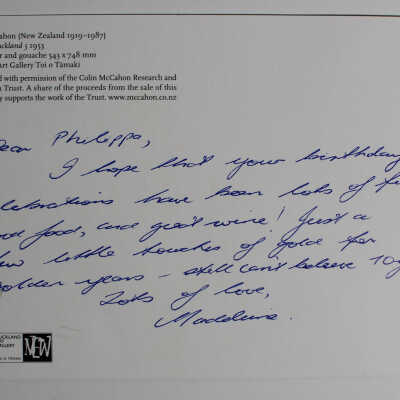 ahon (New Zealand 1919–1987)
ckland 5 1953
r and gouache 543 x 748 mm
Art Gallery Toi o Tāmaki
d with permission of the Colin McCahon Research and
n Trust. A share of the proceeds from the sale of this
y supports the work of the Trust. www.mccahon.co.nz
Dear Philippa,
I hope that your birthday
elebrations have been lots of fu
ood food, and good wine! Just a
few little touches of gold for
golden years – still can't believe 70
Lots of love,
Maddeline.
UCKLAND
GALLERY
NEW